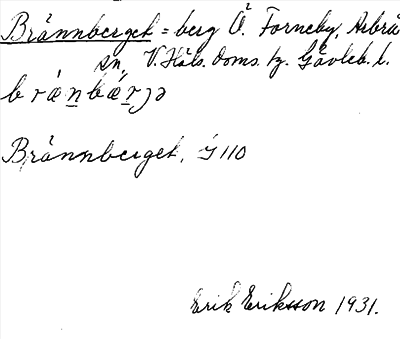 Brännberget = berg Ö. Forneby, Arbrå
sn, V. Häls. doms. tg. Gävleb. l.
bräṉbäṟjə
Brännberget, G 110
Erik Eriksson 1931.